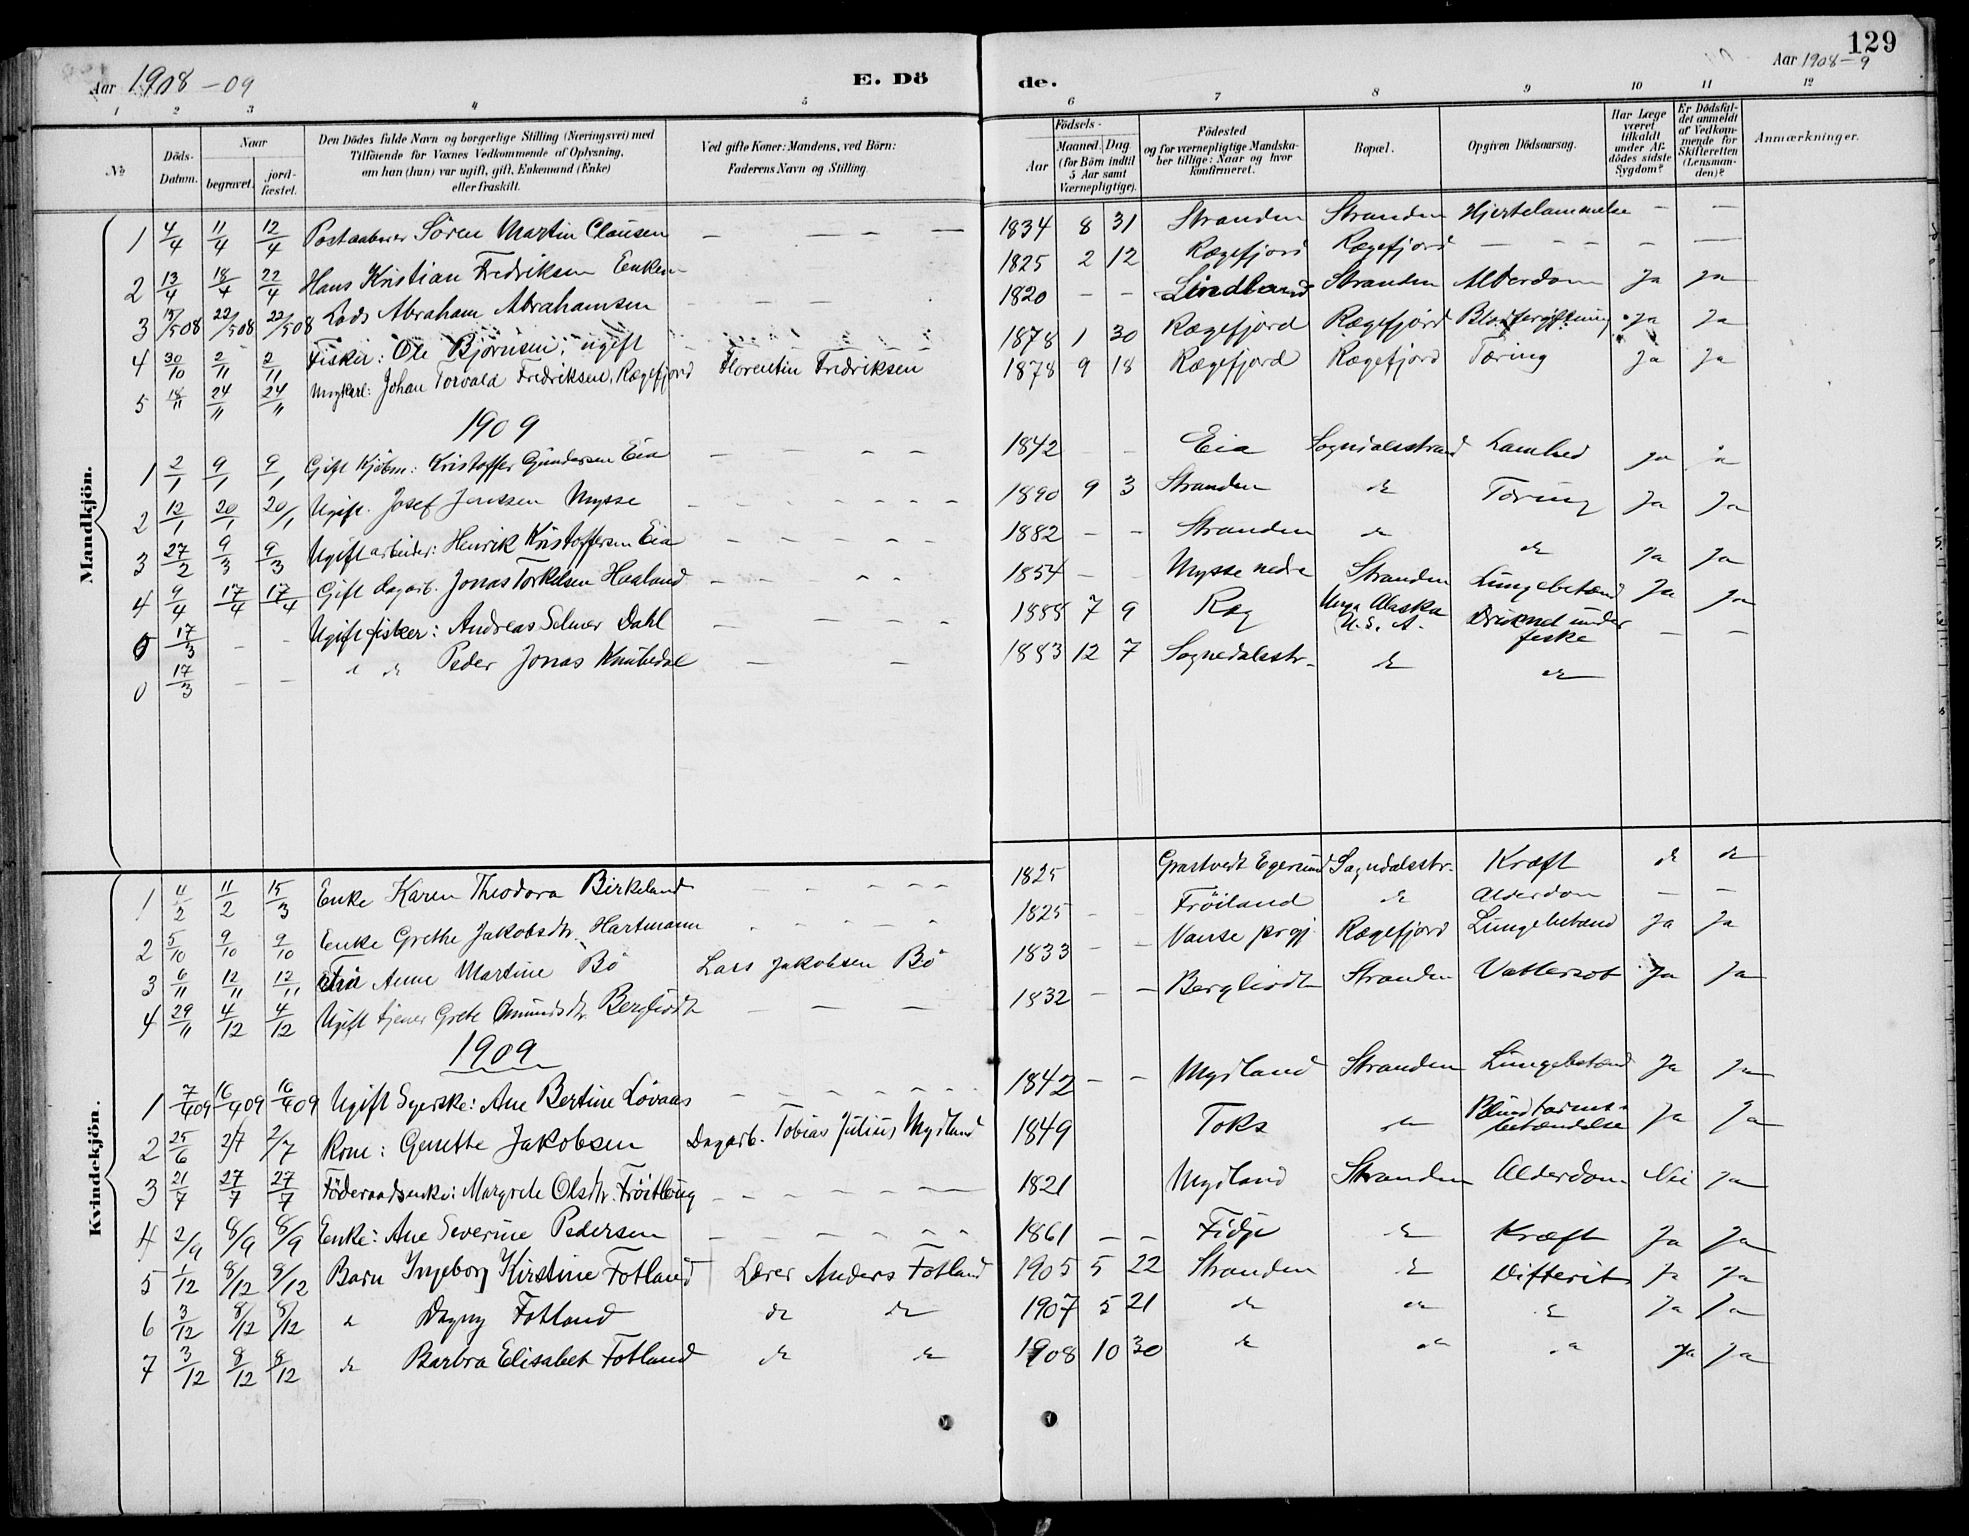 Aar 1908-09
E. Dö
de.
129
Aar 1908-9
1 2 3 4 5 6 7 8 9 10 11 12
№
Döds-Datum.
Naar
begravet.
jord-fæstet.
Den Dödes fulde Navn og borgerlige Stilling (Næringsvei) med
Tilföiende for Voxnes Vedkommende af Oplysning,
om han (hun) var ugift, gift, Enkemand (Enke)
eller fraskilt.
Ved gifte Koner: Mandens, ved Börn:
Faderens Navn og Stilling.
Födsels-
Aar
Maaned. Dag.
(for Börn indtil
5 Aar samt
Værnepligtige).
Födested
og for værnepligtige Mandska-
ber tillige: Naar og hvor
konfirmeret.
Bopæl.
Opgiven Dödsaarsag.
Har Læge
været
tilkaldt
under Af-
dödes sidste
Sygdom?
Er Dödsfal-
det anmeldt
af Vedkom-
mende for
Skifteretten
(Lensman-
den)?
Anmærkninger.
Mandkjön.
1 4/4 11/4 12/4 Postaabner Sören Martin Clausen — — — — 1834 8 31 Stranden Stranden Hjertelammelse — —
2 13/4 18/4 22/4 Hans Kristian Fredriksen Enkem 1825 2 12 Rægefjord Rægefjord — — — — —
3 15/508 22/508 22/508 Lods Abraham Abrahamsen — — — 1820 — — Lindland Stranden Alderdom Ja Ja
4 30/10 2/11 2/11 Fisker: Ole Bjørnsen, ugift 1878 1 30 Rægefjord Rægefjord Blodforgiftning Ja Ja
5 18/11 24/11 24/11 Ungkarl: Johan Torvald Fredriksen, Rægefjord Florentin Fredriksen 1878 9 18 Rægefjord Rægefjord Tæring Ja Ja
1909
1 2/1 9/1 9/1 Gift Kjøbm: Kristoffer Gundersen Eia — — — — — 1842 — Eia Sogndalsstrand Lamhed Ja Ja
2 12/1 20/1 20/1 Ugift. Josef Jenssen Mysse — — — — — 1890 9 3 Stranden do Tæring Ja Ja
3 27/2 9/3 9/3 Ugift arbeider: Henrik Kristoffersen Eia — — — — — 1882 — — Stranden do do Ja Ja
4 9/4 17/4 17/4 Gift dagarb. Jonas Torkelsen Haaland — — — — 1854 — — Mysse nedre Stranden Lungebetænd Ja Ja
0 17/3 — — Ugift fisker: Andreas Selmer Dahl — — — — — 1888 7 9 Ræg Unga Alaska U.S.A. Druknet under fiske — —
0 17/3 — — do do Peder Jonas Knubedal — — 1883 12 7 Sognedalsstr. do do
Kvindekjön.
1 4/2 11/2 15/3 Enke Karen Theodora Birkeland — — — — — 1825 Grastvedt Egersund Sogndalsstr. Kræft do do
2 5/10 9/10 9/10 Enke Grethe Jakobsdtr. Hartmann — — — — 1825 — — Frøiland do Alderdom — —
3 6/11 12/11 12/11 Anne Martine Bö Lars Jakobsen Bö 1833 — — Vanse prgj. Rægefjord Lungebetænd Ja Ja
4 29/11 4/12 4/12 Ugift tjener Grete Omundsdtr. Bergliodt — — — 1832 — — Bergliodt Stranden Vattersot Ja Ja
1909
1 7/409 16/409 16/409 Ugift Syerske: Ane Bertine Løvaas — — — — — 1842 — — Mydland Stranden Lungebetænd Ja Ja
2 25/6 2/7 2/7 Kone: Genette Jakobsen Dagarb. Tobias Julius Mydland 1849 Toks do Blindtarmsbetændelse Ja Ja
3 21/7 27/7 27/7 Föderaadsenke: Margrete Olsdtr. — — — — — 1821 Mydland Stranden Alderdom Nei Ja
4 2/9 8/9 8/9 Enke: Ane Severine Pedersen — — — — — 1861 — — Fidje do Kræft Ja Ja
5 1/12 8/12 8/12 Barn Ingeborg Kirstine Fotland Lærer Anders Fotland 1905 5 22 Stranden do Difterit Ja Ja
6 3/12 8/12 8/12 do Dagny Fotland do do 1907 5 21 do do do Ja Ja
7 3/12 8/12 8/12 do Barbra Elisabet Fotland do do 1908 10 30 do do do Ja Ja